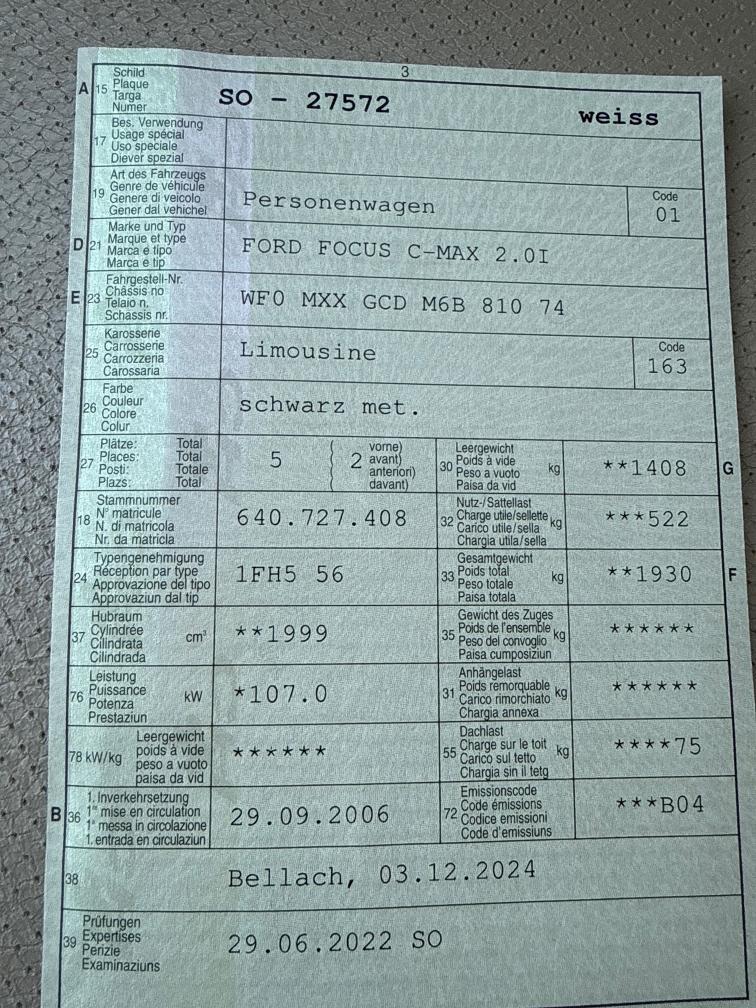 3
A 15 Schild
Plaque
Targa
Numer
SO - 27572 weiss
17 Bes. Verwendung
Usage spécial
Uso speciale
Diever spezial
19 Art des Fahrzeugs
Genre de véhicule
Genere di veicolo
Gener dal vehichel
Personenwagen
Code
01
D 21 Marke und Typ
Marque et type
Marca e tipo
Marca e tip
FORD FOCUS C-MAX 2.0I
E 23 Fahrgestell-Nr.
Châssis no
Telaio n.
Schassis nr.
WF0 MXX GCD M6B 810 74
25 Karosserie
Carrosserie
Carrozzeria
Carossaria
Limousine
Code
163
26 Farbe
Couleur
Colore
Colur
schwarz met.
27 Plätze: Total
Places: Total
Posti: Totale
Plazs: Total
5 ( 2 vorne)
avant)
anteriori)
davant)
30 Leergewicht
Poids à vide
Peso a vuoto
Paisa da vid
kg
**1408 G
18 Stammnummer
N° matricule
N. di matricola
Nr. da matricla
640.727.408
32 Nutz-/Sattellast
Charge utile/sellette
Carico utile/sella
Chargia utila/sella
kg
***522
24 Typengenehmigung
Réception par type
Approvazione del tipo
Approvaziun dal tip
1FH5 56
33 Gesamtgewicht
Poids total
Peso totale
Paisa totala
kg
**1930 F
37 Hubraum
Cylindrée
Cilindrata
Cilindrada
cm³
**1999
35 Gewicht des Zuges
Poids de l'ensemble
Peso del convoglio
Paisa cumposiziun
kg
******
76 Leistung
Puissance
Potenza
Prestaziun
kW
*107.0
31 Anhängelast
Poids remorquable
Carico rimorchiato
Chargia annexa
kg
******
78 kW/kg Leergewicht
poids à vide
peso a vuoto
paisa da vid
******
55 Dachlast
Charge sur le toit
Carico sul tetto
Chargia sin il tetg
kg
****75
B 36 1. Inverkehrsetzung
1re mise en circulation
1a messa in circolazione
1. entrada en circulaziun
29.09.2006
72 Emissionscode
Code émissions
Codice emissioni
Code d'emissiuns
***B04
38 Bellach, 03.12.2024
39 Prüfungen
Expertises
Perizie
Examinaziuns
29.06.2022 SO